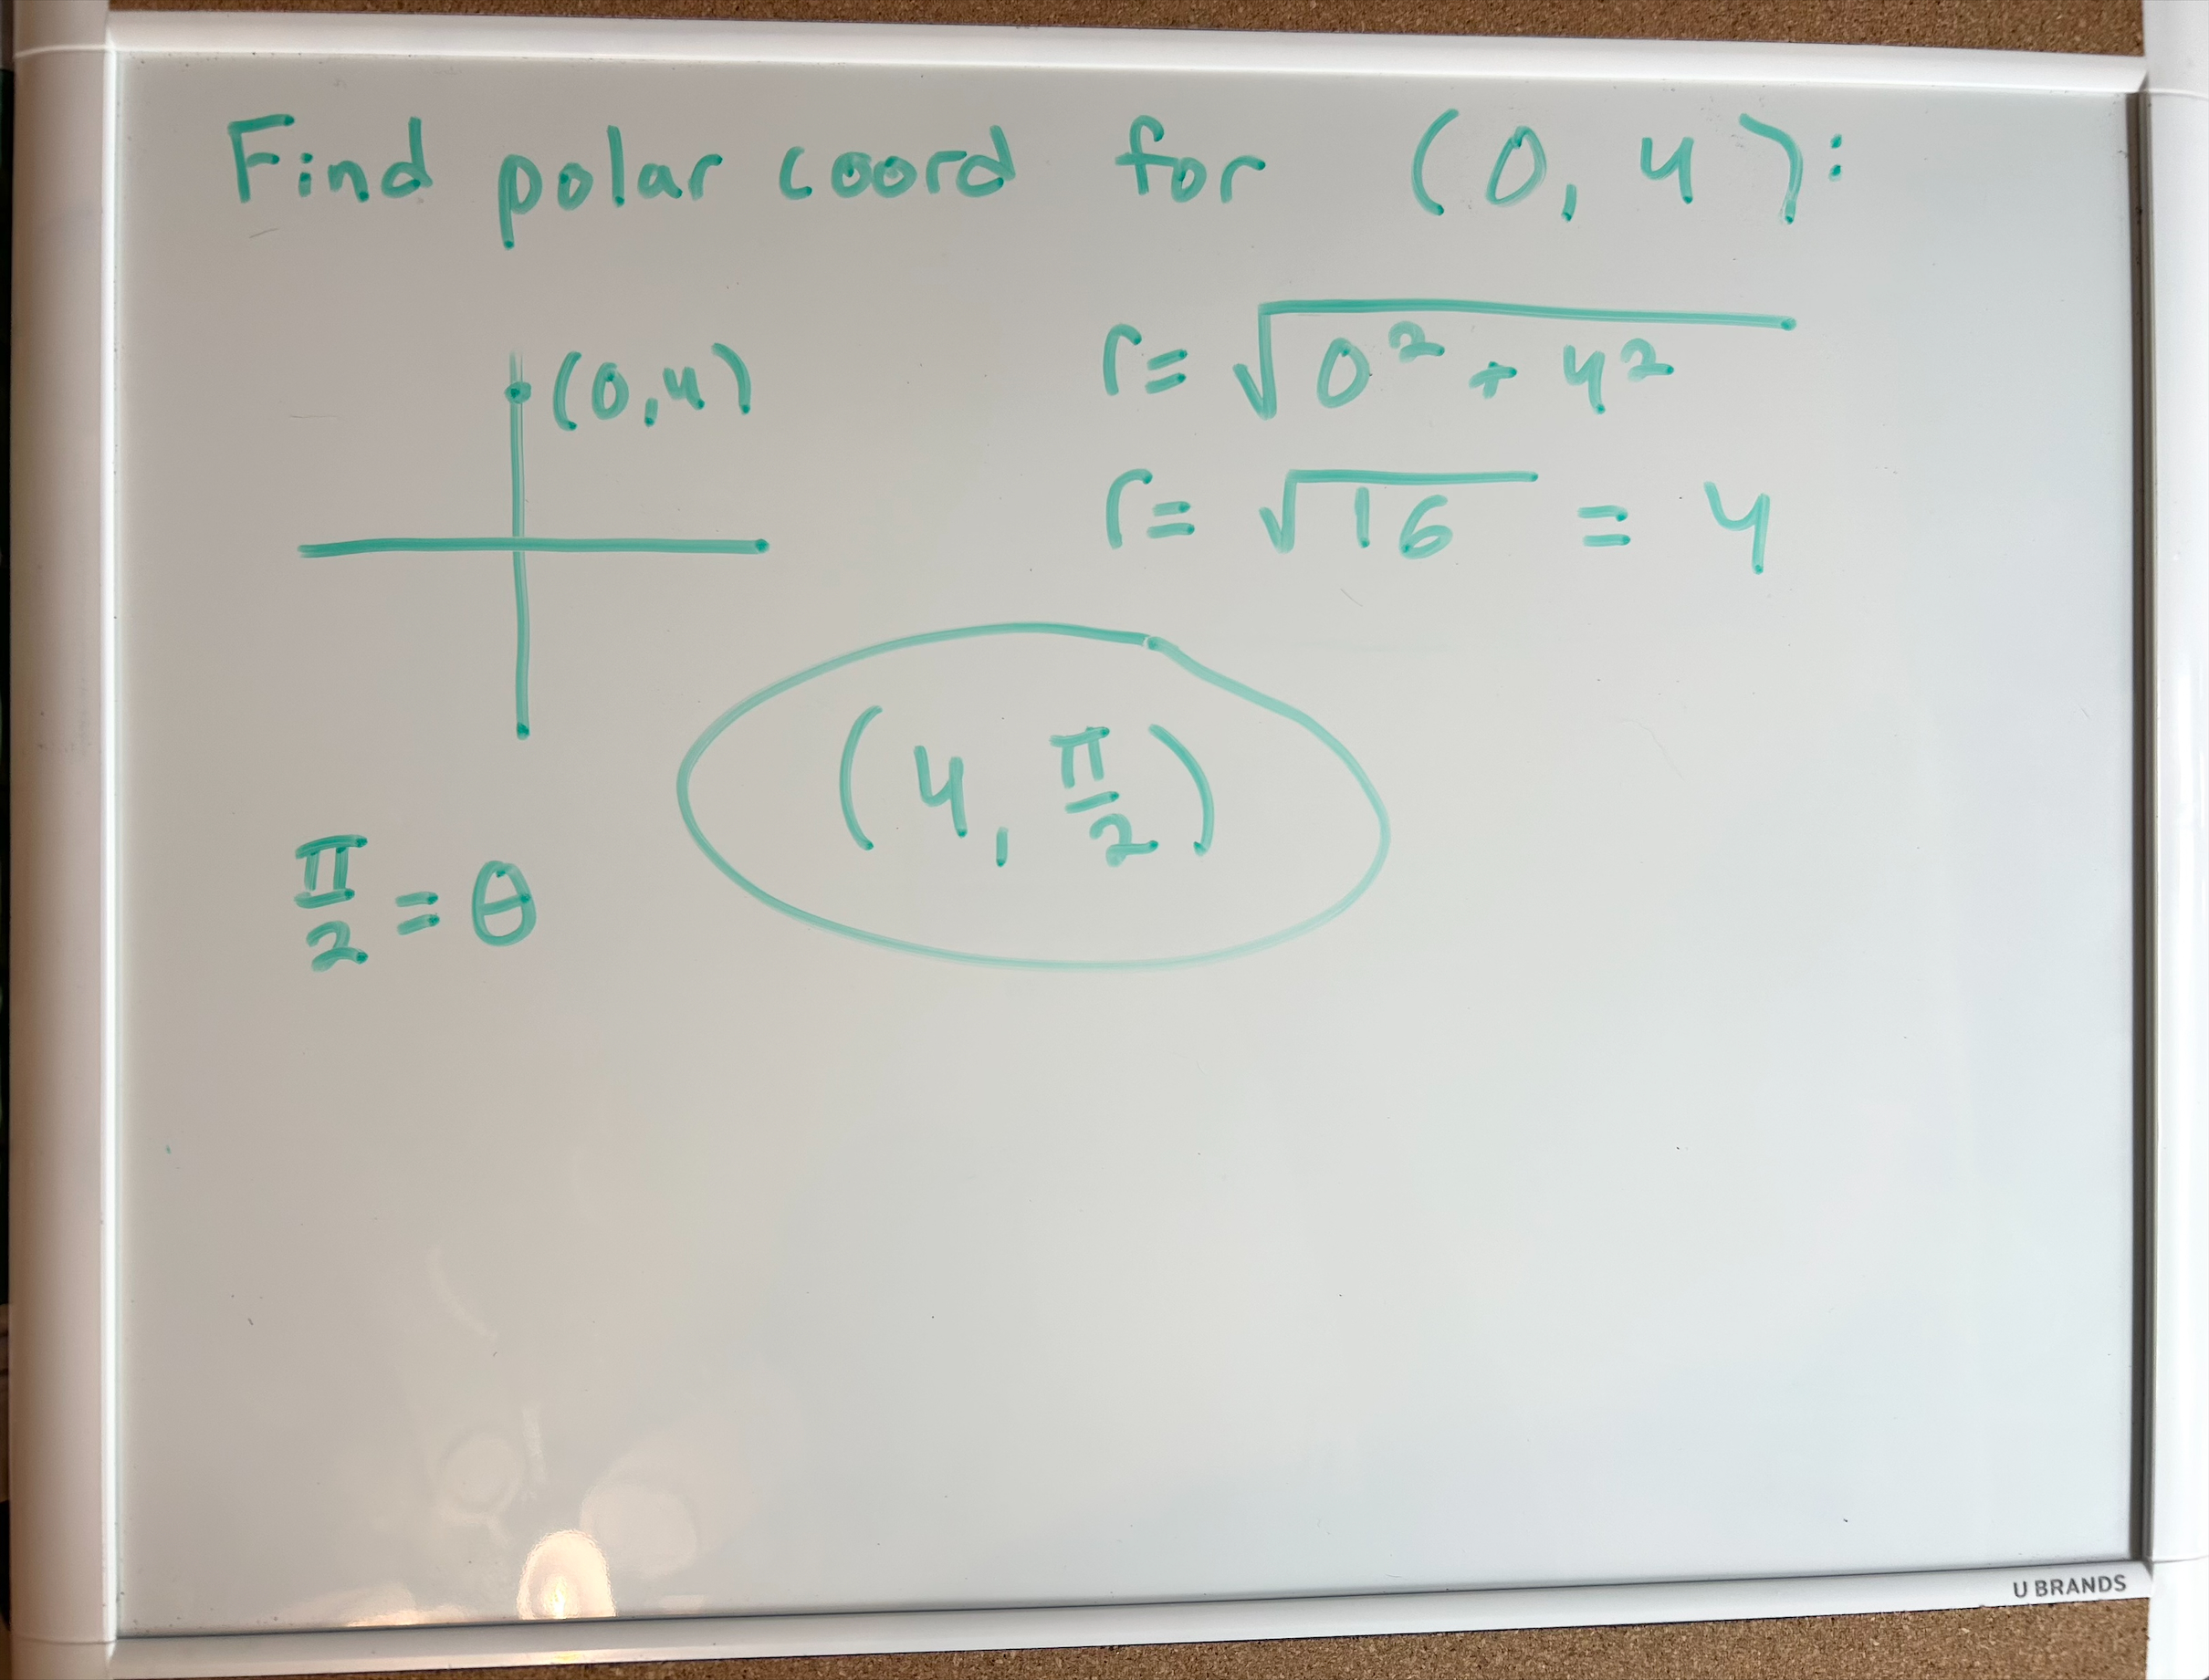 Find polar coord for (0, 4):
(0,4)
r = √(0² + 4²)
r = √16 = 4
(4, π/2)
π/2 = θ
U BRANDS